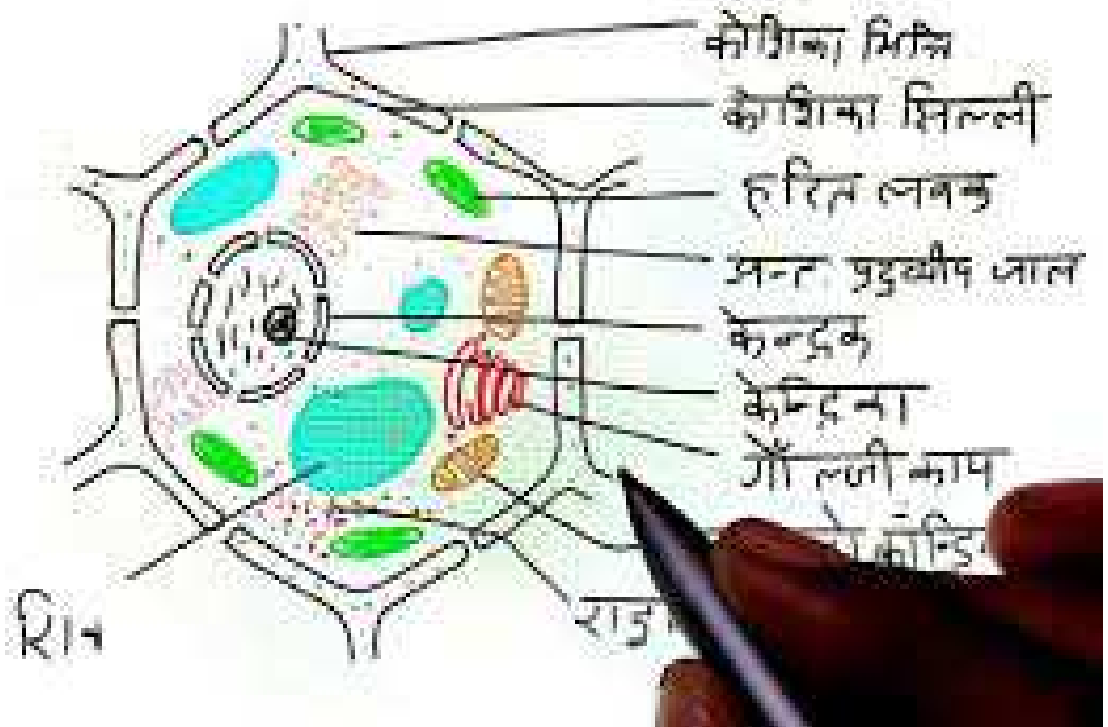 कोशिका भित्ति
कोशिका झिल्ली
हरित लवक
अन्त प्रद्रव्यीय जाल
केन्द्रक
केन्द्रिका
गॉल्जी काय
कॉन्ड्रि